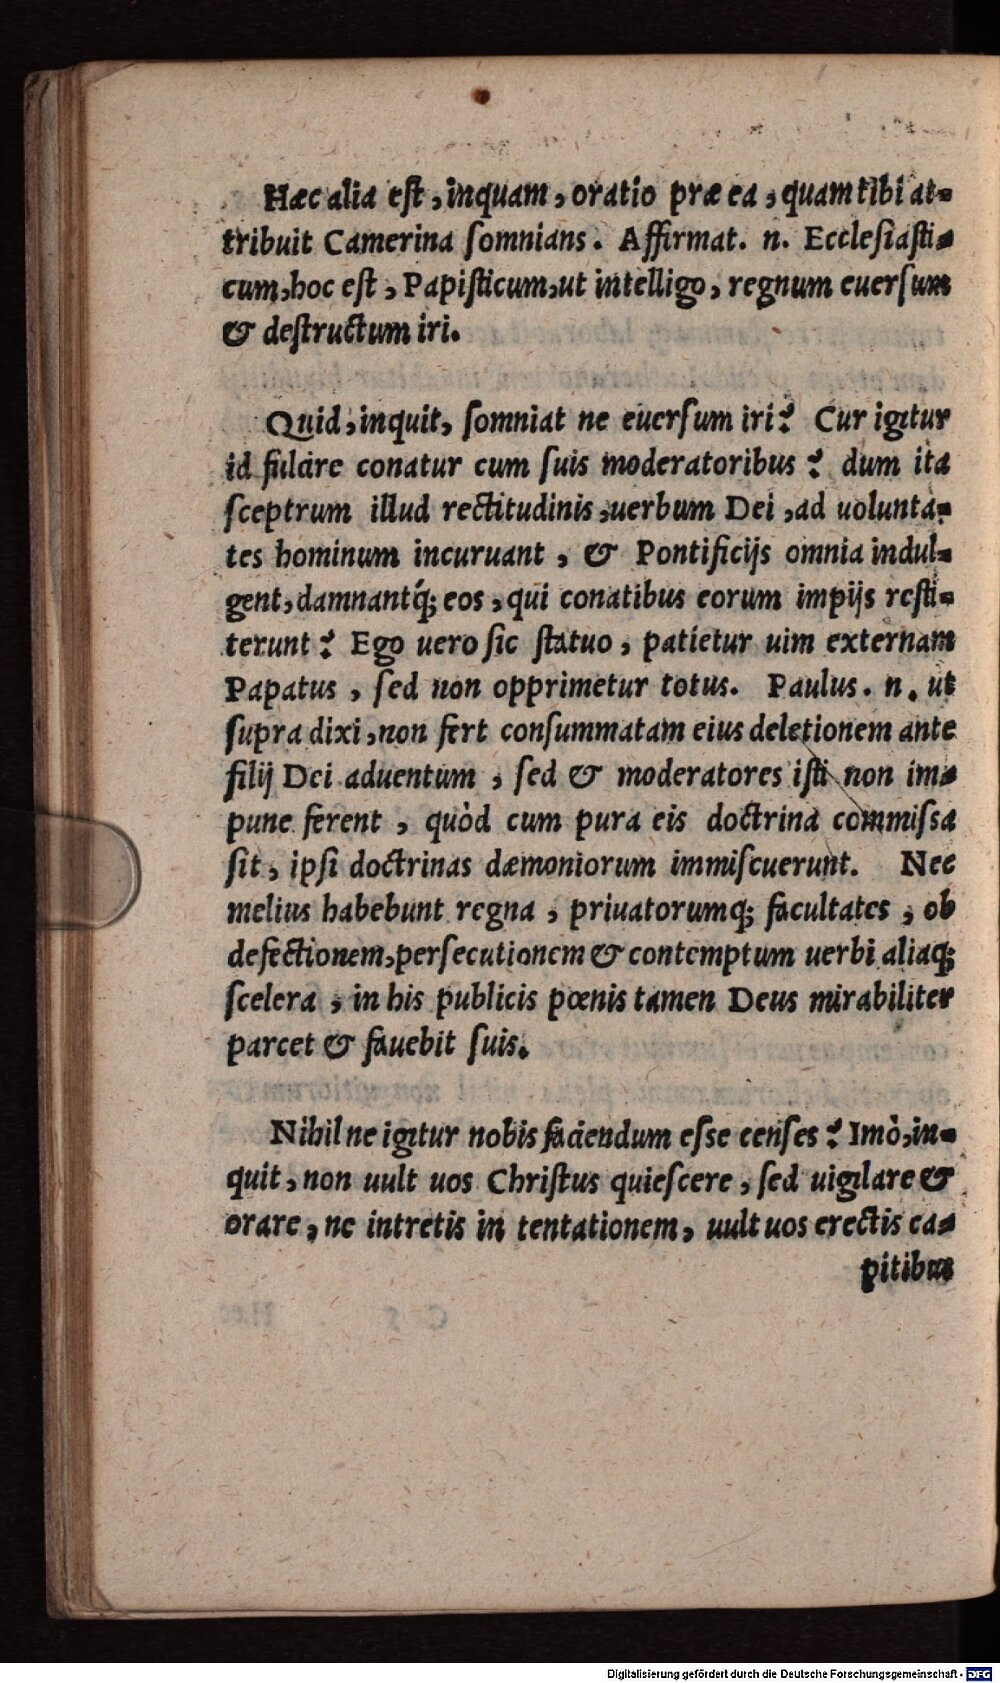 Hæc alia est, inquam, oratio præ ea, quam tibi at-
tribuit Camerina somnians. Affirmat. n. Ecclesiasti-
cum, hoc est, Papisticum, ut intelligo, regnum euersum
& destructum iri.
Quid, inquit, somniat ne euersum iri? Cur igitur
id fulcire conatur cum suis moderatoribus? dum ita
sceptrum illud rectitudinis, uerbum Dei, ad uolunta-
tes hominum incuruant, & Pontificijs omnia indul-
gent, damnantq́; eos, qui conatibus eorum impijs resti-
terunt? Ego uero sic statuo, patietur uim externam
Papatus, sed non opprimetur totus. Paulus. n. ut
supra dixi, non fert consummatam eius deletionem ante
filij Dei aduentum, sed & moderatores isti non im-
pune ferent, quòd cum pura eis doctrina commissa
sit, ipsi doctrinas dæmoniorum immiscuerunt. Nec
melius habebunt regna, priuatorumq; facultates, ob
defectionem, persecutionem & contemptum uerbi aliaq;
scelera, in his publicis pœnis tamen Deus mirabiliter
parcet & fauebit suis.
Nihil ne igitur nobis faciendum esse censes? Imò, in-
quit, non uult uos Christus quiescere, sed uigilare &
orare, ne intretis in tentationem, uult uos erectis ca-
pitibus
Digitalisierung gefördert durch die Deutsche Forschungsgemeinschaft - DFG